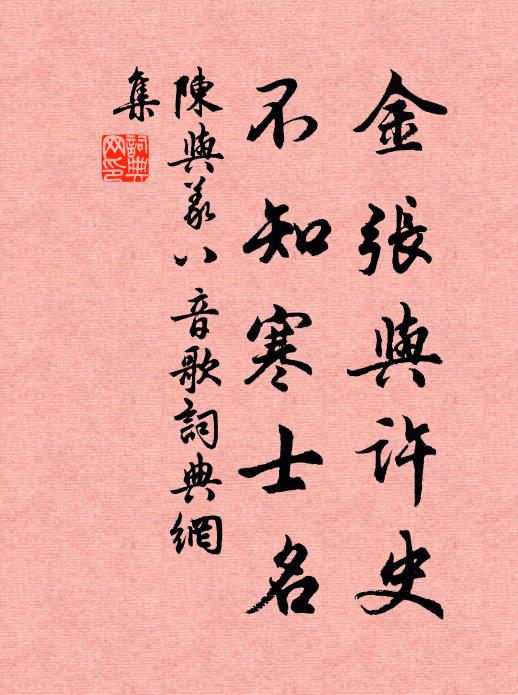 金張與許史
不知寒士名
陳與義八音歌詞典網
集
詞典網印